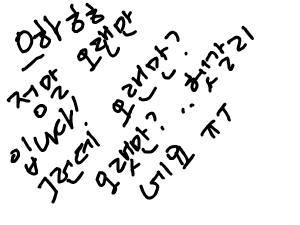 와 ㅎㅎ
정말 오랜만
입니다!
그런데 오랜만?
오랫만? .. 헷갈리
네요 ㅠㅠ